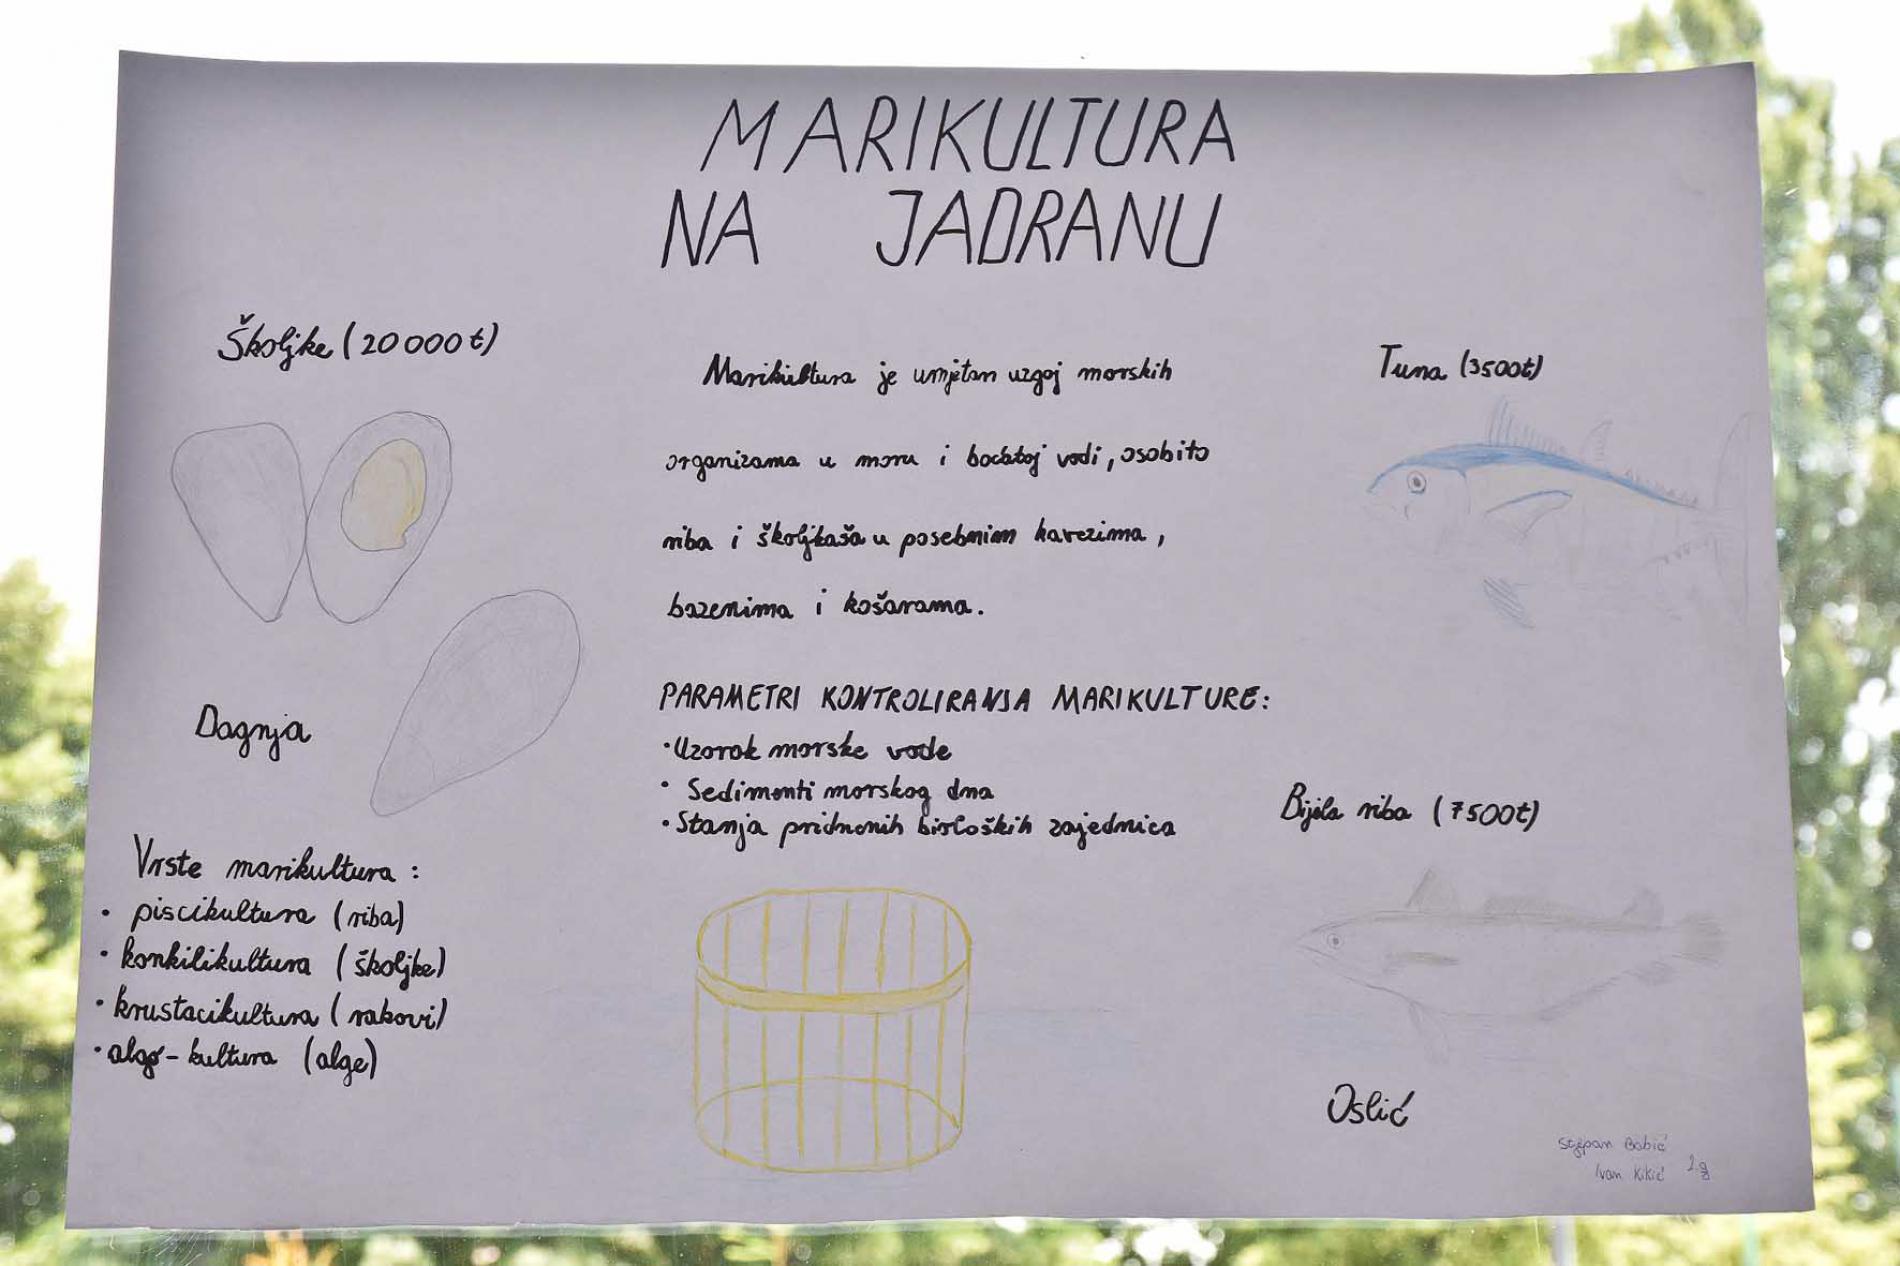 MARIKULTURA
NA JADRANU
Školjke (20 000 t)
Dagnja
Vrste marikultura :
• piscikultura (riba)
• konkilikultura (školjke)
• krustacikultura (rakovi)
• algo-kultura (alge)
Marikultura je umjetan uzgoj morskih
organizama u moru i boćatoj vodi, osobito
riba i školjkaša u posebnim kavezima,
bazenima i košarama.
PARAMETRI KONTROLIRANJA MARIKULTURE:
• Uzorak morske vode
• Sedimenti morskog dna
• Stanja pridnenih bioloških zajednica
Tuna (3500t)
Bijela riba (7500t)
Oslić
Stjepan Babić
Ivan Kikić